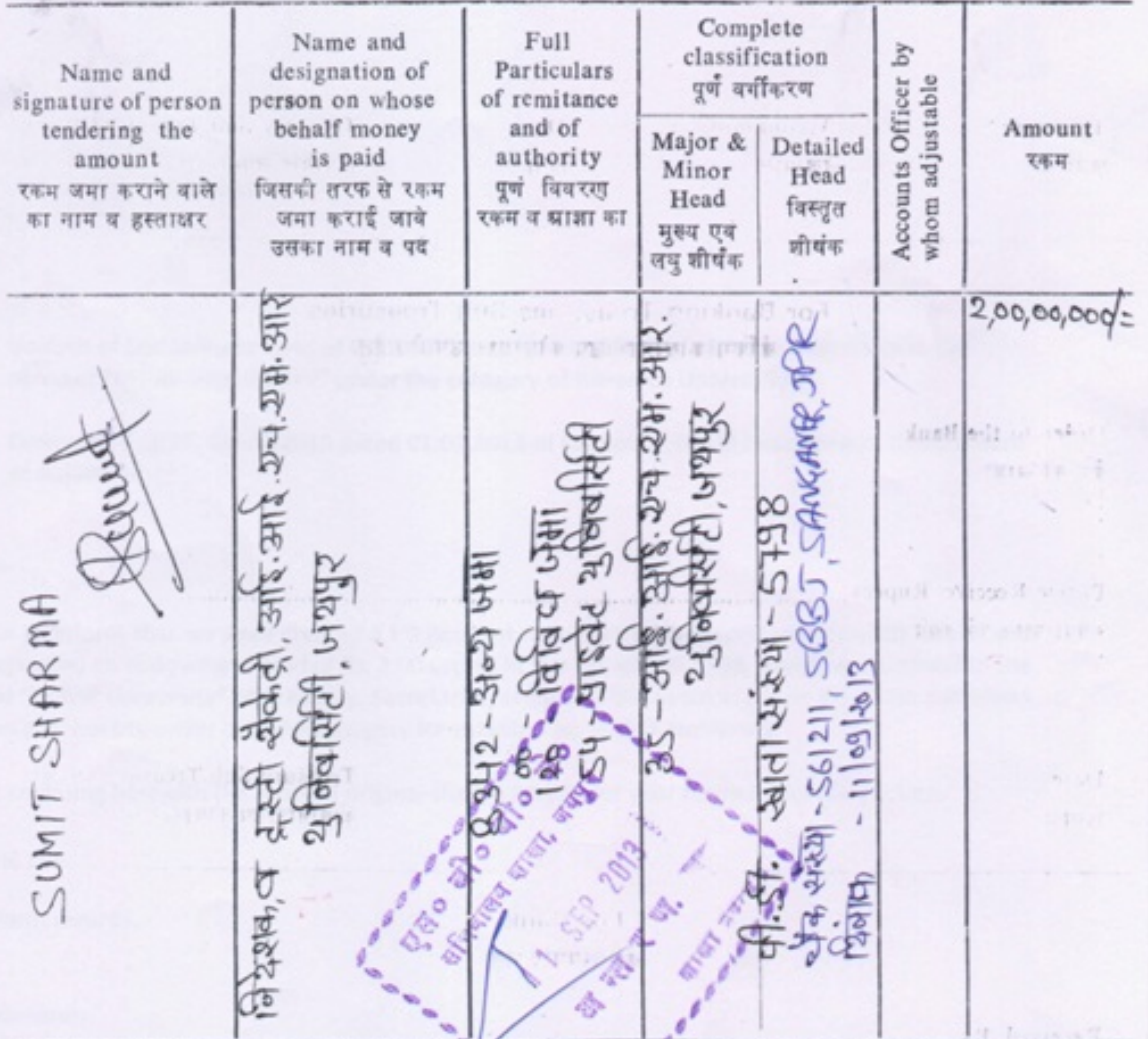 Name and
signature of person
tendering the
amount
रकम जमा कराने वाले
का नाम व हस्ताक्षर
Name and
designation of
person on whose
behalf money
is paid
जिसकी तरफ से रकम
जमा कराई जावे
उसका नाम व पद
Full
Particulars
of remitance
and of
authority
पूर्ण विवरण
रकम व आज्ञा का
Complete
classification
पूर्ण वर्गीकरण
Major &
Minor
Head
मुख्य एवं
लघु शीर्षक
Detailed
Head
विस्तृत
शीर्षक
Accounts Officer by
whom adjustable
Amount
रकम
SUMIT SHARMA
निदेशक, द
ट्रस्टी सैकेट्री, आई.आई.एच.एम.आर
यूनिवर्सिटी, जयपुर
8342 अन्य जमा
120 - विविध जमा
प्राइवेट यूनिवर्सिटी
आई.आई.एच.एम.आर.
यूनिवर्सिटी, जयपुर
पी.डी. खाता संख्या - 5798
चैक संख्या - 561211 - SBBJ, SANGANER, JPR
दिनांक - 11/09/2013
2,00,00,000/=
सचिवालय शाखा, जयपुर
SEP 2013